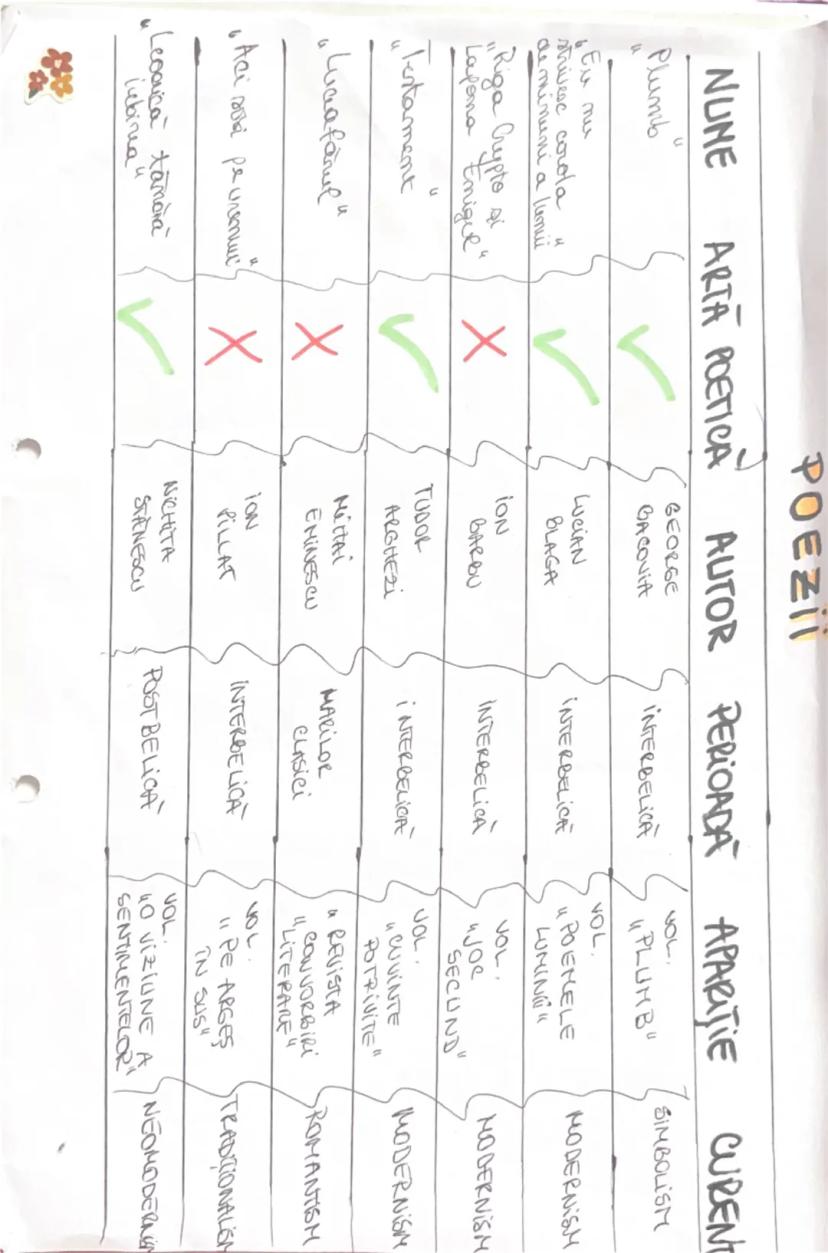 POEZII
NUME ARTĂ POETICĂ AUTOR PERIOADĂ APARIȚIE CURENT
"Plumb"
GEORGE
BACOVIA
INTERBELICĂ
VOL.
"PLUMB"
SIMBOLISM
"Eu nu
strivesc corola
de minuni a lumii"
LUCIAN
BLAGA
INTERBELICĂ
VOL.
"POEMELE
LUMINII"
MODERNISM
"Riga Crypto și
Lapona Enigel"
ION
BARBU
INTERBELICĂ
VOL.
"JOC
SECUND"
MODERNISM
"Testament"
TUDOR
ARGHEZI
INTERBELICĂ
VOL.
"CUVINTE
POTRIVITE"
MODERNISM
"Luceafărul"
MIHAI
EMINESCU
MARILOR
CLASICI
"REVISTA
CONVORBIRI
LITERARE"
ROMANTISM
"Aci sosi pe vremuri"
ION
PILLAT
INTERBELICĂ
VOL.
"PE ARGEȘ
ÎN SUS"
TRADIȚIONALISM
"Leoaică tânără
iubirea"
NICHITA
STĂNESCU
POSTBELICĂ
VOL.
"O VIZIUNE A
SENTIMENTELOR"
NEOMODERNISM